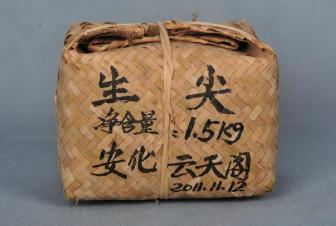 生尖
净含量:1.5Kg
安化云天阁
2011.11.12